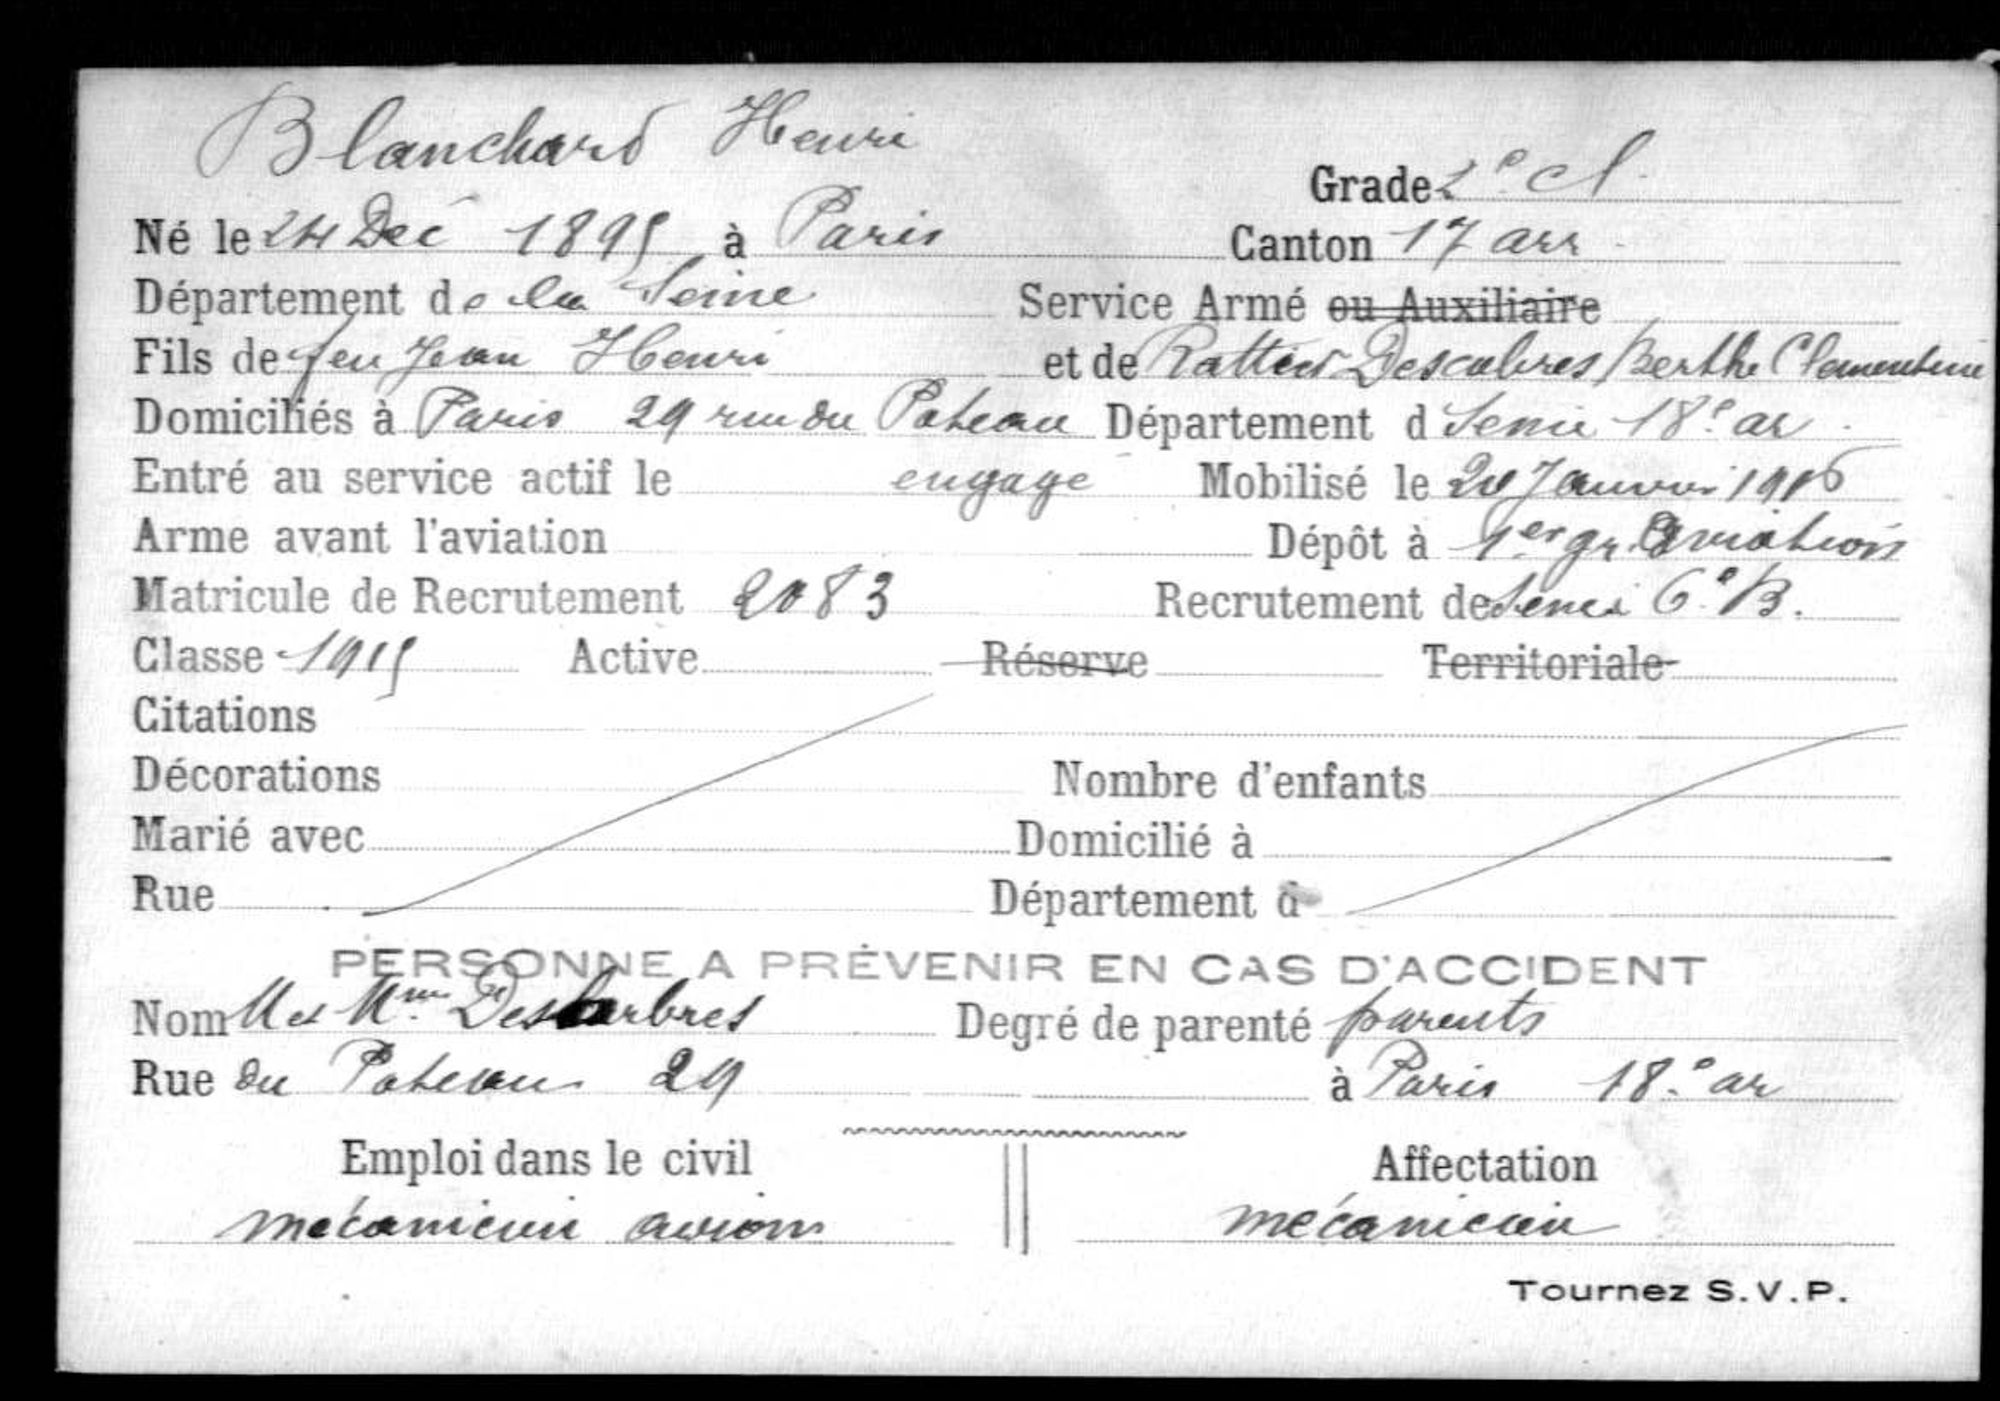 Blanchard Henri
Grade 2e cl.
Né le 24 Dec 1895 à Paris Canton 17 arr
Département de la Seine Service Armé ou Auxiliaire
Fils de feu Jean Henri et de Descabres Berthe Clementine
Domiciliés à Paris 29 rue du Poteau Département d Seine 18e ar
Entré au service actif le engagé Mobilisé le 20 Janvier 1916
Arme avant l'aviation Dépôt à 1er gr. Aviation
Matricule de Recrutement 2083 Recrutement de Seine 6e B.
Classe 1915 Active Réserve Territoriale
Citations
Décorations Nombre d'enfants
Marié avec Domicilié à
Rue Département d
PERSONNE A PRÉVENIR EN CAS D'ACCIDENT
Nom M et Mme Degré de parenté parents
Rue du Poteau 29 à Paris 18e ar
Emploi dans le civil Affectation
mécanicien avions mécanicien
Tournez S.V.P.